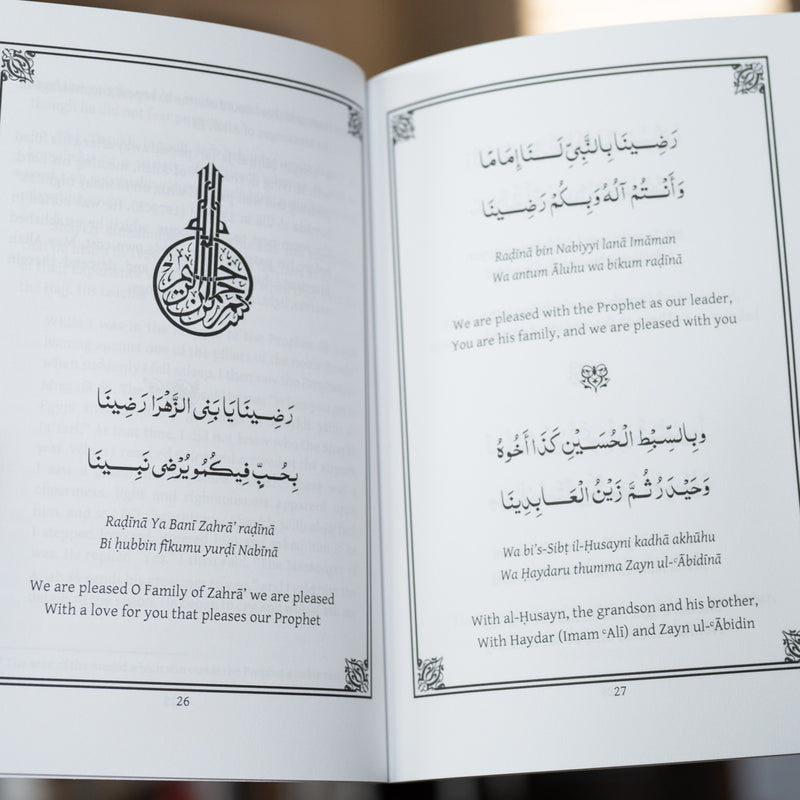 بسم الله الرحمن الرحيم
رَضِـينَا يَا بَنِى الزَّهْرَا رَضِينَا
بِحُبٍّ فِيكُمُو يُرْضِى نَبِـيـنَا
Raḍīnā Ya Banī Zahrā’ raḍīnā
Bi ḥubbin fīkumu yurḍī Nabīnā
We are pleased O Family of Zahrā’ we are pleased
With a love for you that pleases our Prophet
26
رَضِـينَا بِالنَّبِيِّ لَـنَـا إِمَامًا
وَأَنْـتُمْ آلُهُ وَبِـكُمْ رَضِـينَا
Raḍīnā bin Nabiyyi lanā Imāman
Wa antum Āluhu wa bikum raḍīnā
We are pleased with the Prophet as our leader,
You are his family, and we are pleased with you
وبِالسِّبْطِ الْحُسَـيْنِ كَذَا أَخُوهُ
وَحَيْدَرُ ثُـمَّ زَيْنُ الْعَـابِدِينَا
Wa bi’s-Sibṭ il-Ḥusayni kadhā akhūhu
Wa Ḥaydaru thumma Zayn ul-ʿĀbidīnā
With al-Ḥusayn, the grandson and his brother,
With Haydar (Imam ʿAlī) and Zayn ul-ʿĀbidin
27